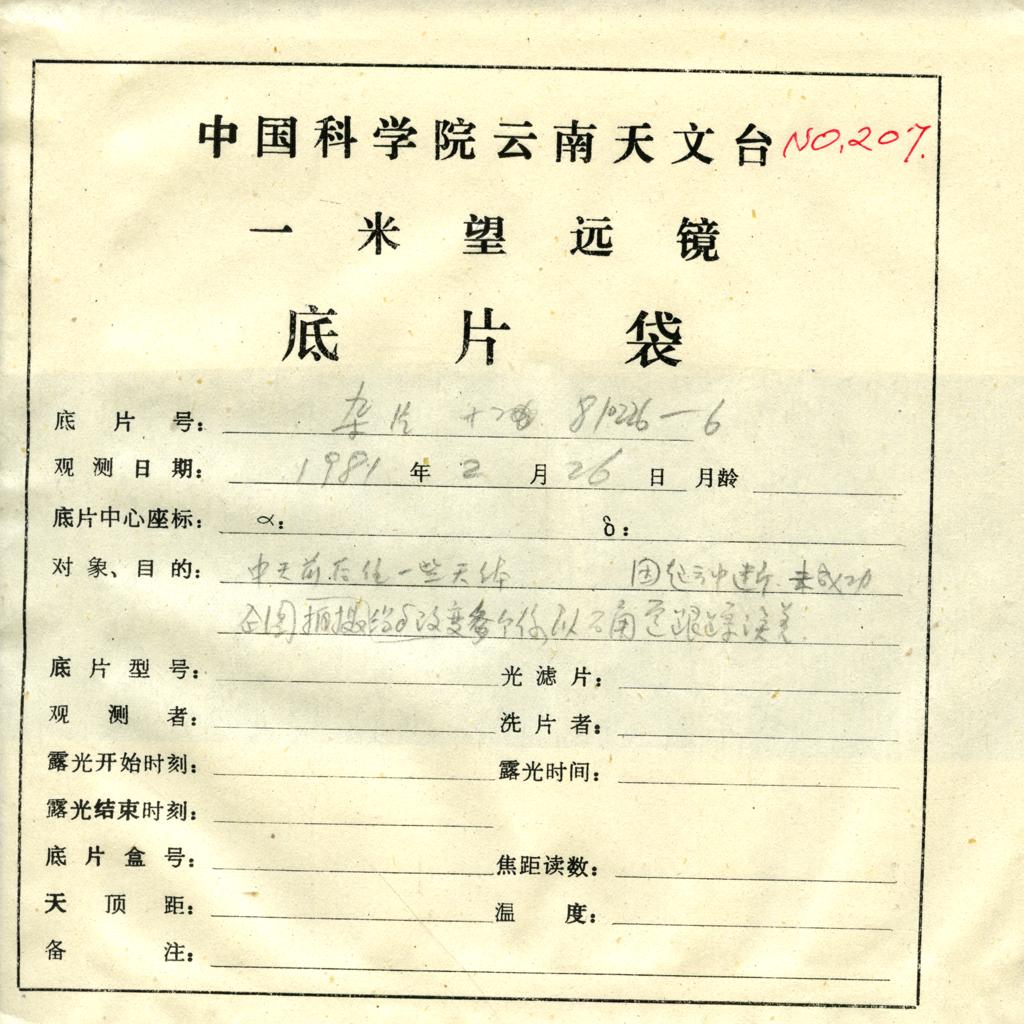 中国科学院云南天文台 NO.207.
一米望远镜
底片袋
底片号： 杂片 81026-6
观测日期： 1981 年 2 月 26 日 月龄
底片中心座标： α： δ：
对象、目的： 中天前后任一些天体 因 中断 未成功
拍摄 δ改变 以 跟踪误差
底片型号： 光滤片：
观测者： 洗片者：
露光开始时刻： 露光时间：
露光结束时刻：
底片盒号： 焦距读数：
天顶距： 温度：
备注：